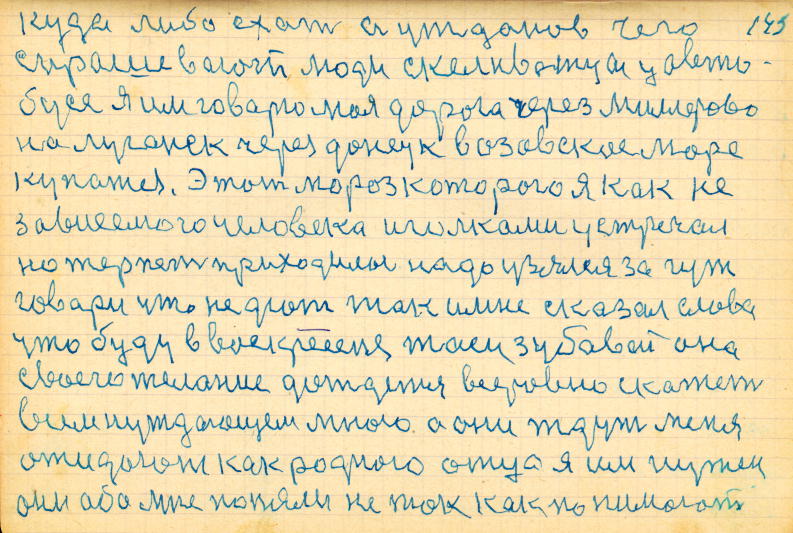 куда либо ехат а уж донов чего 145
спрашевают люди скелкватуи у авто-
бусе я им говарю моя дорога через миллерово
на луганск через донецк в озовское море
купатся. Этот мороз которого я как не
зависемого человека иголками устречал
но терпет приходилос надо узялся за гуж
говари что не дюж так и мне сказал слова
что буду в воскресеня таси зубавай она
своего желание дождется веёровно скажет
всем нуждающем много а они ждут меня
ожидают как родного отца я им нужен
они або мне поняли не так как понимают